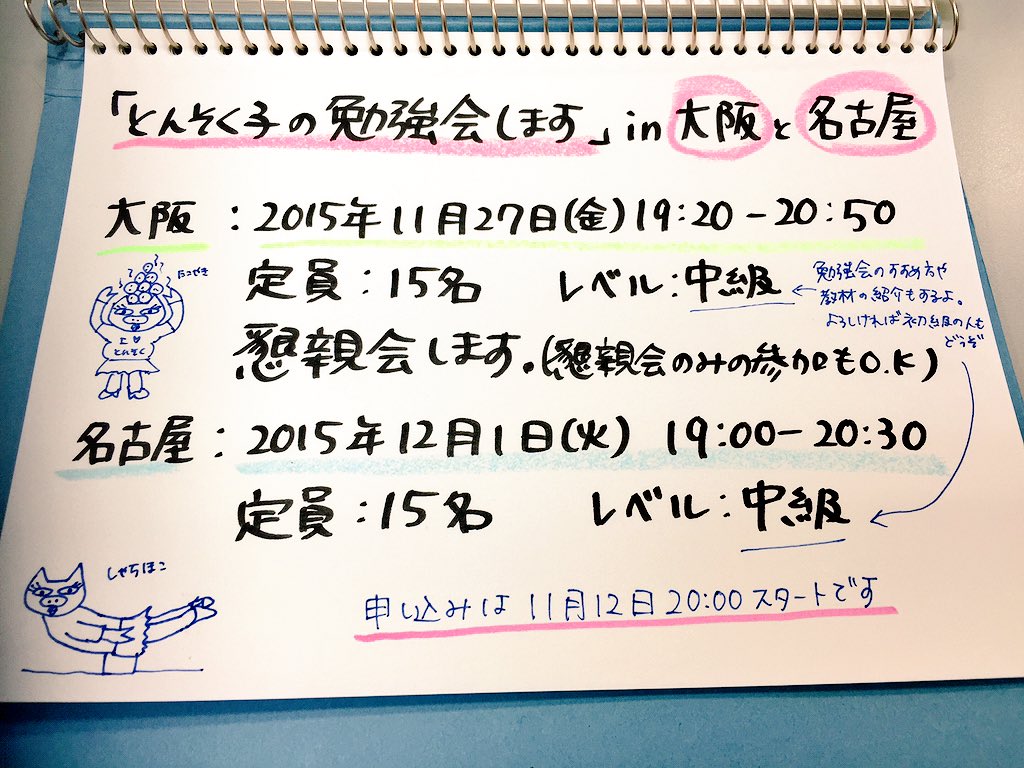 「とんそく子の勉強会します」in 大阪と名古屋
大阪：2015年11月27日(金)19:20－20:50
たこやき
I ♡
とんそく
定員：15名　レベル：中級
勉強会のすすめ方や
教材の紹介もするよ。
よろしければ初級の人も
どうぞ
懇親会します。(懇親会のみの参加もO.K)
名古屋：2015年12月1日(火) 19:00－20:30
定員：15名　レベル：中級
しゃちほこ
申し込みは 11月12日 20:00 スタートです